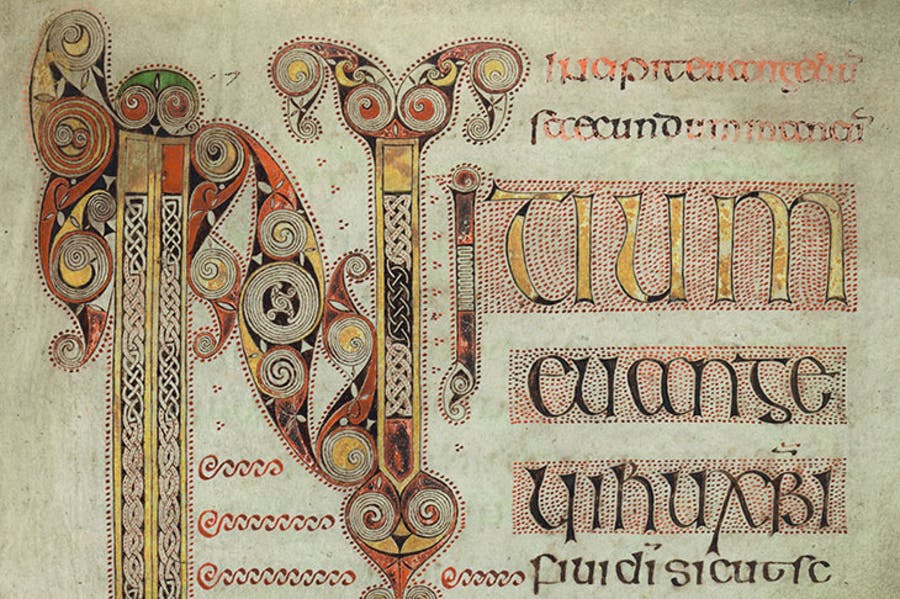 incipit euangeliū
secundum marcū
INITIUM
euange
lii ihu xp̄i
fili dī sicut sc